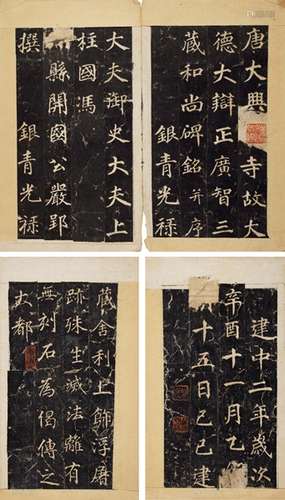 唐大興 寺故大
德大辯正廣智三
藏和尚碑銘并序
銀青光祿
大夫御史大夫上
柱國馮
縣開國公嚴郢
撰 銀青光祿
建中二年歲次
辛酉十一月乙
十五日己巳建
藏舍利上飾浮屠
跡殊生滅法離有
無刻石為偈傳之
大都